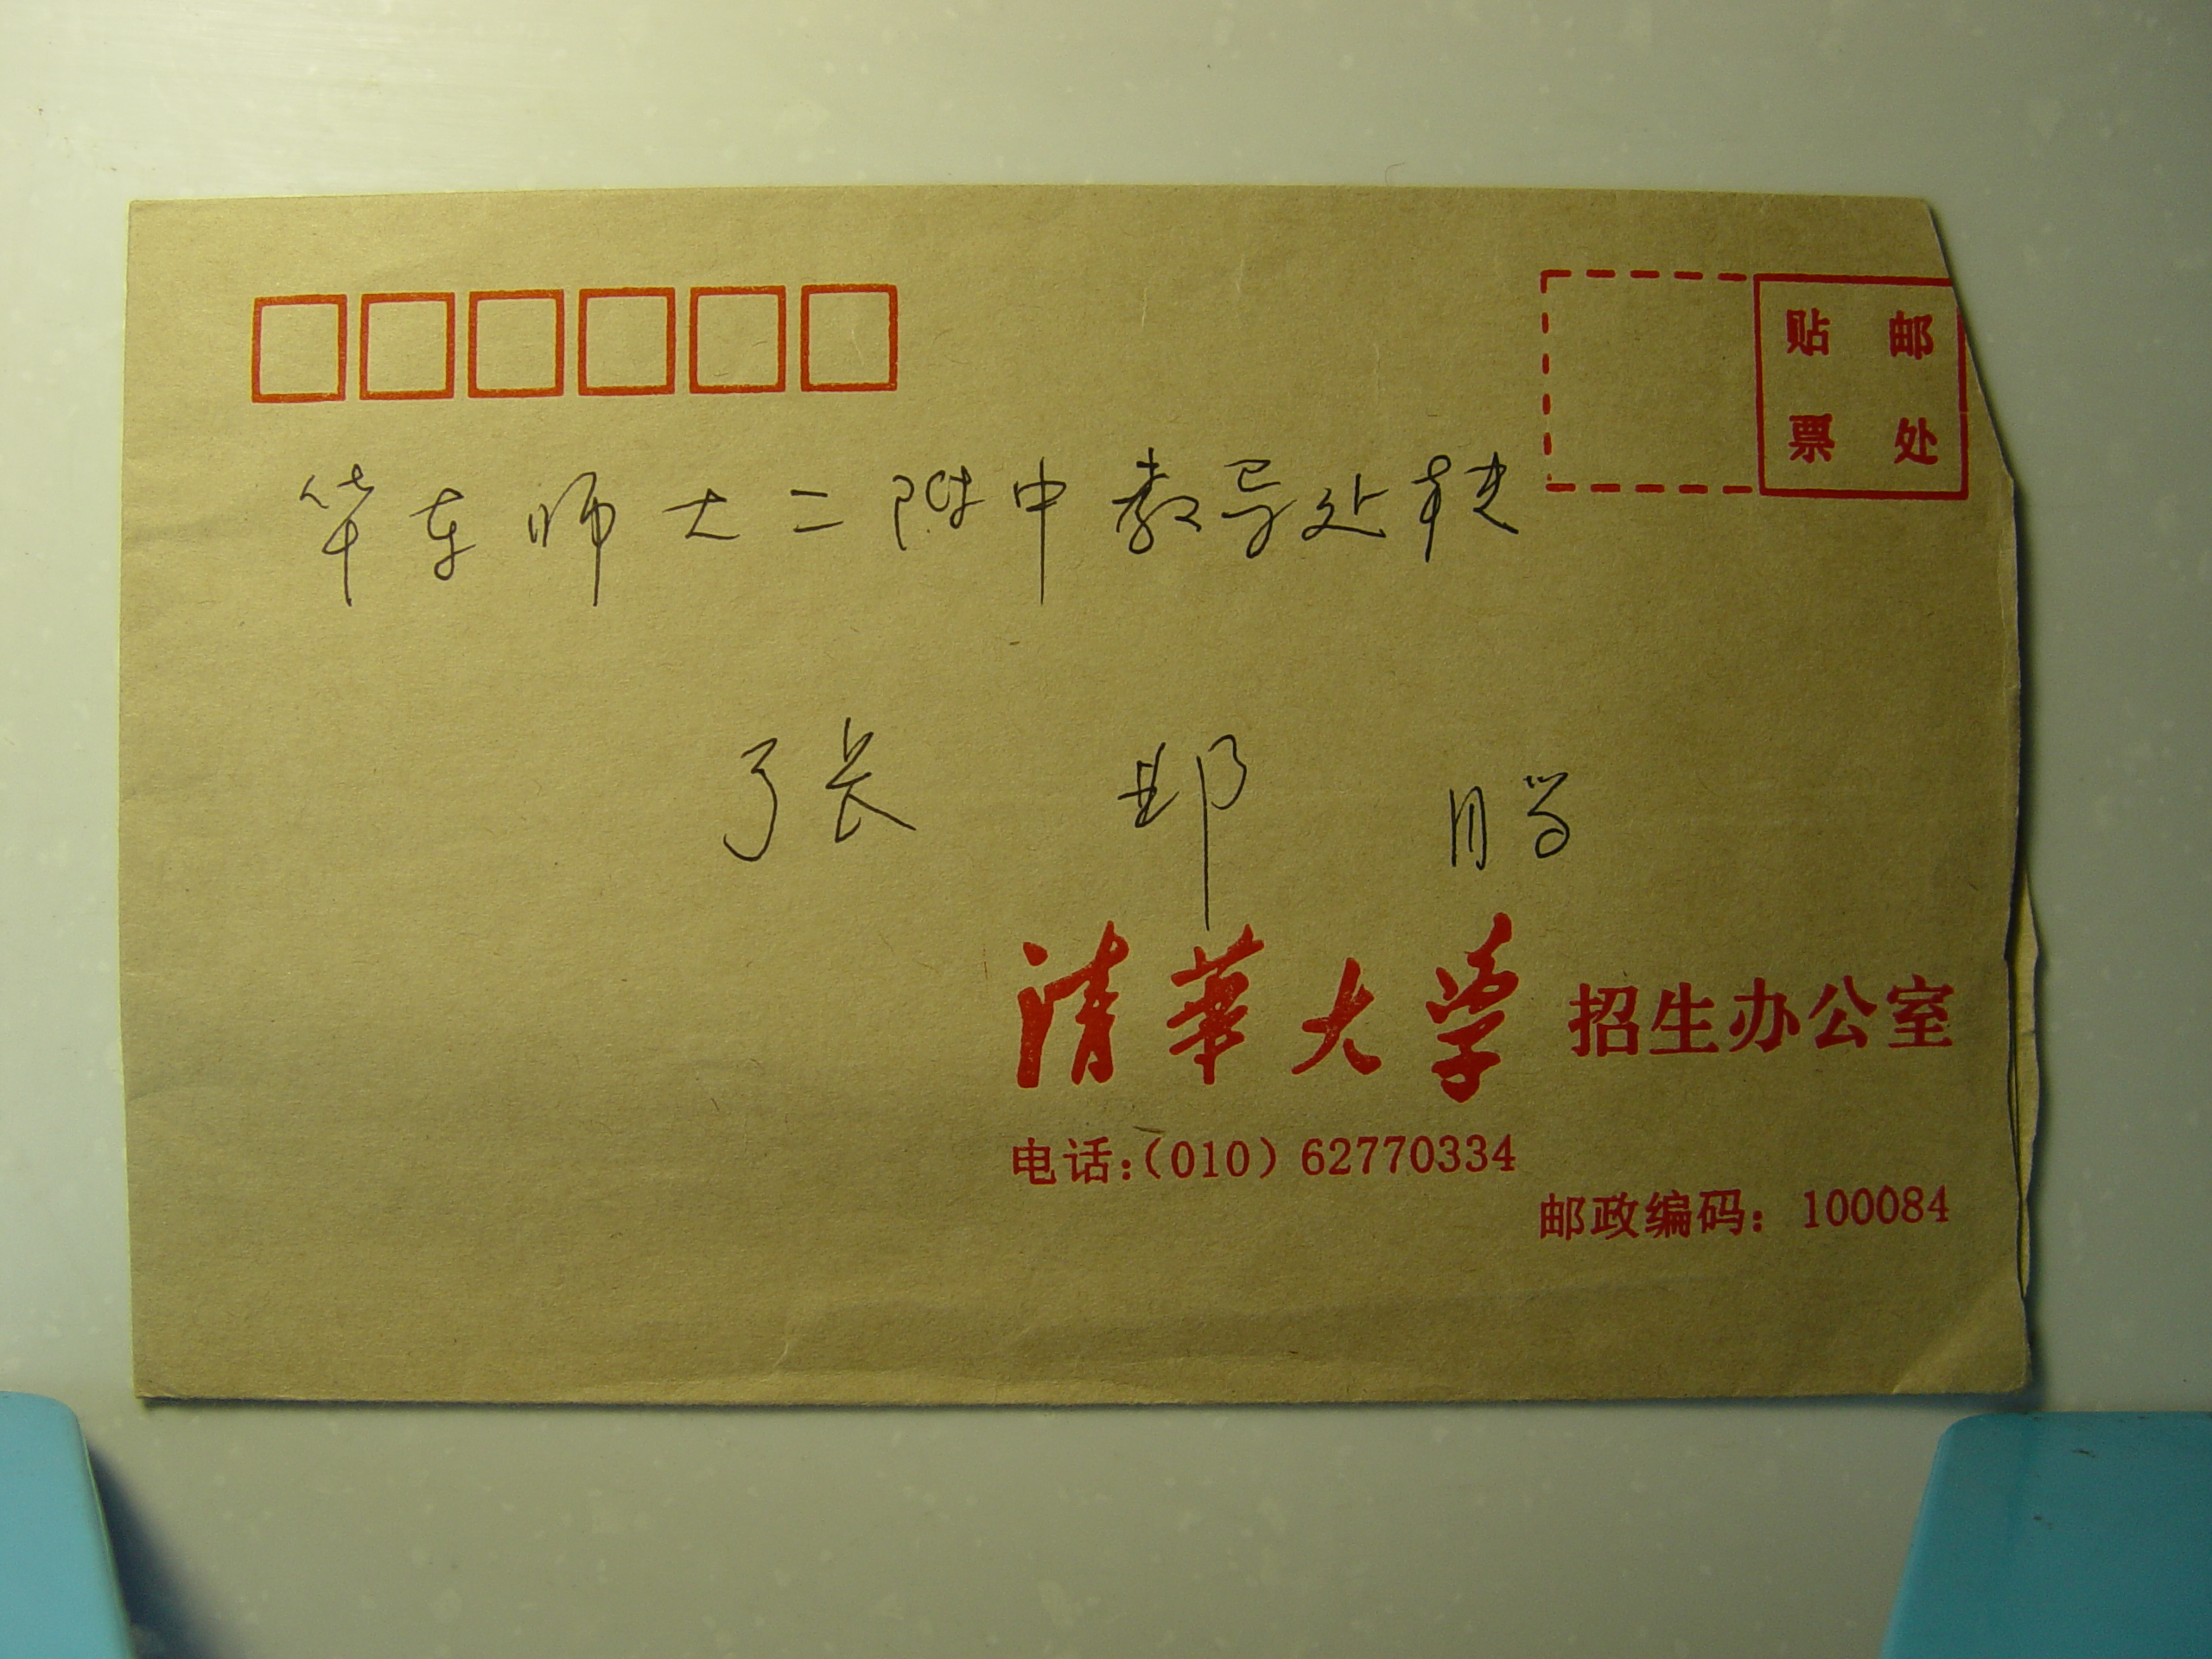 贴 邮
票 处
华东师大二附中教导处转
张 邯
清華大学 招生办公室
电话:(010)62770334
邮政编码:100084